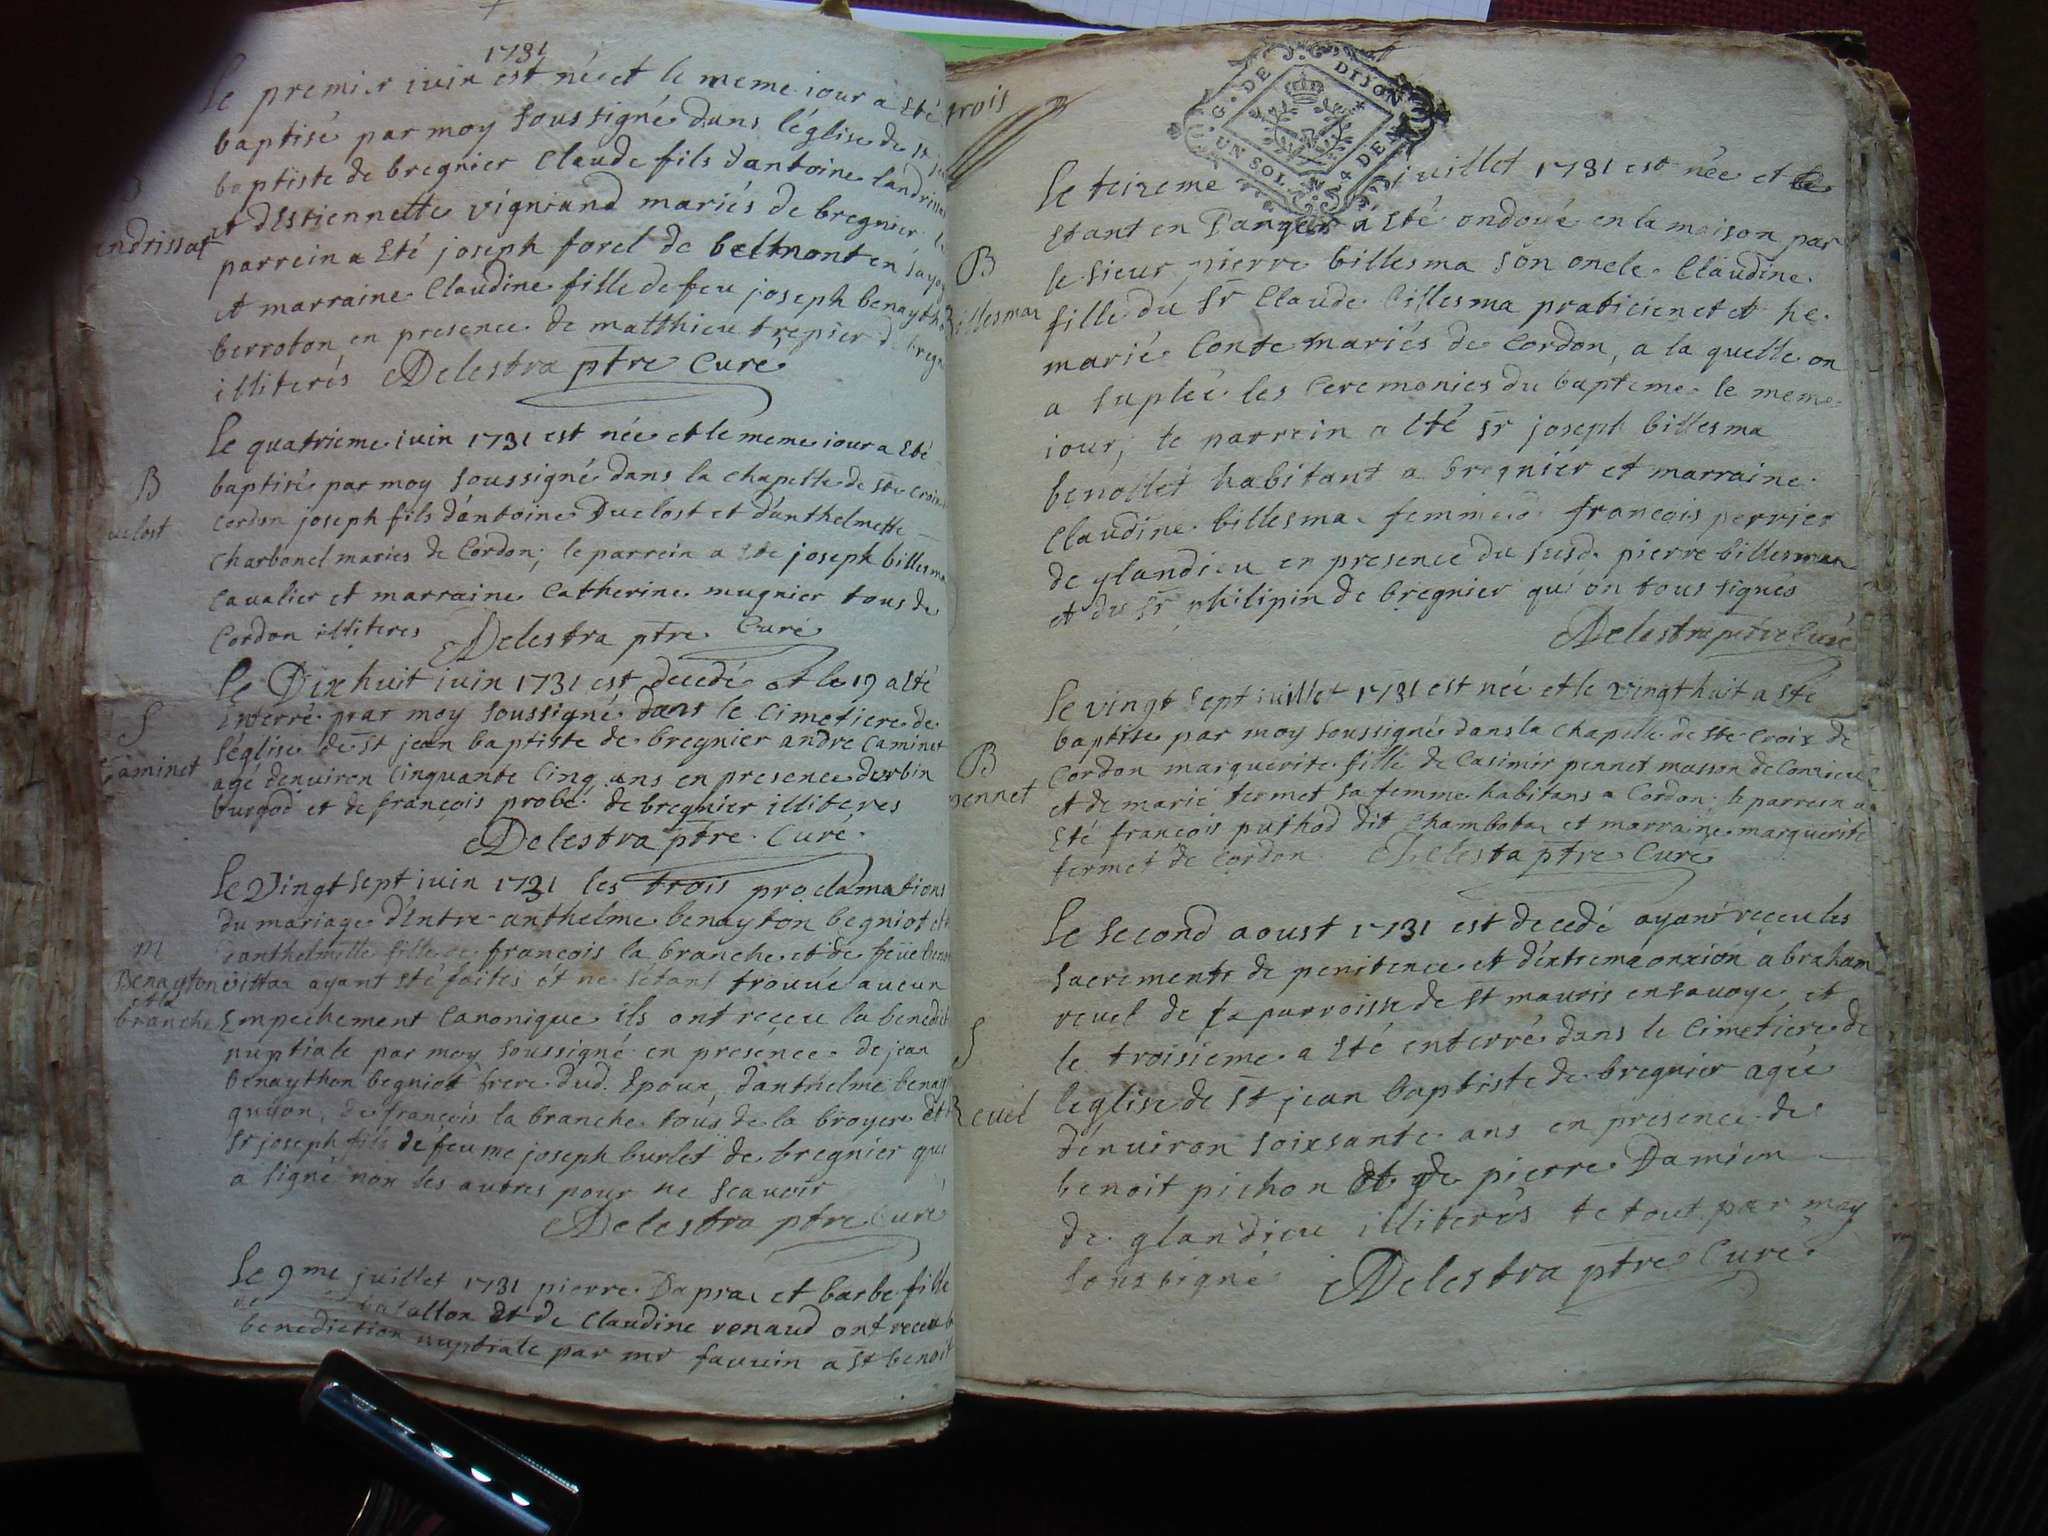 1731
Le premier iuin est née et le meme iour a Eté
baptisé par moy soussigné dans léglise de st
baptiste de bregnier Claude fils dantoine landrissat
et dEstiennette vigniand mariés de bregnier le
parrein a Eté joseph forel de beltmont en savoye
et marraine Claudine fille de feu joseph benaython
berroton en presence de matthieu trepier de bregnier
illiterés Delestra ptre Curé
B
andrissat
Le quatrieme iuin 1731 est née et le meme iour a Eté
baptisé par moy soussigné dans la chapelle de ste croix
cordon joseph fils dantoine Duclost et danthelmette
charbonel mariés de Cordon; le parrein a Eté joseph billesma
cavalier et marraine Catherine mugnier tous de
Cordon illiteres Delestra ptre Curé
B
uclost
Le Dix huit iuin 1731 est decedé et le 19 a Eté
Enterré prar moy soussigné dans le Cimetiere de
léglise de st jean baptiste de bregnier andré Caminet
agé denviron Cinquante Cinq ans en presence durbin
burgod et de françois probé de bregnier illiteres
Delestra ptre Curé
S
Caminet
Le Vingt sept iuin 1731 les trois proclamations
du mariage d'Entre anthelme benayton begniot et
danthelmette fille de françois la branche et de feüe
vittoz ayant Eté faites et ne sétant trouvé aucun
Empechement Canonique ils ont receu la benedict
nuptiale par moy soussigné en presence de jean
benaython begniot frere dud. Epoux, danthelme benay
guyon, de françois la branche tous de la broyere et
Sr joseph fils de feu me joseph burlet de bregnier qui
a signé non les autres pour ne scavoir
Delestra ptre Curé
m
Benayton
et la
branche
Le 9me juillet 1731 pierre Dapra et barbe fille
de allon et de Claudine renaud ont receu la
benediction nuptiale par mr fauvin a St benoit
trois
G. DE DIJON
UN SOL 4 DEN
Le treizeme juillet 1731 est née et
Etant en Danger a Eté ondoyé en la maison par
le sieur pierre billesma son oncle Claudine
fille du Sr Claude billesma praticien et et he
marie Conte mariés de Cordon, a la quelle on
a supleé les Ceremonies du bapteme le meme
iour, le parrein a Eté Sr joseph billesma
benollet habitant a bregnier et marraine
Claudine billesma femme de françois perrier
de glandieu en presence du susd. pierre billesmaz
et du Sr philipin de bregnier qui on tous signés
Delestra ptre Curé
B
Billesmaz
Le vingt sept iuillet 1731 est née et le vingt huit a Eté
baptisée par moy soussigné dans la chapelle de ste Croix de
Cordon marguerite fille de Casimir pennet masson de Conzieu
et de marie fermet sa femme habitans a Cordon; le parrein a
Eté françois puthod dit Chambotaz et marraine marguerite
fermet de Cordon Delestra ptre Curé
B
pennet
Le second aoust 1731 est decedé ayant reçeu les
sacrements de penitence et dextreme onxion abraham
revel de la parroisse de St mauris en savoye et
le troisieme a Eté enterré dans le Cimetiere de
leglise de St jean baptiste de bregnier ageé
dénuiron soixsante ans en presence de
benoit pichon et de pierre Damien
de glandieu illiterés le tout par moy
soussigné Delestra ptre Curé
S
Reuel